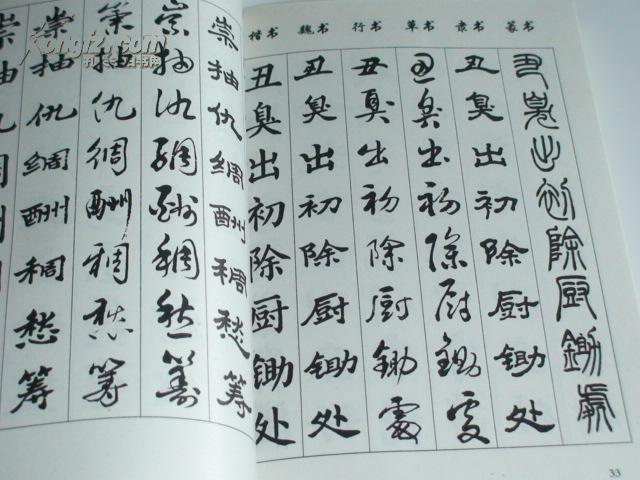 Kongfz.com
孔夫子旧书网
崇抽仇绸酬稠愁筹
崇抽仇绸酬稠愁筹
崇抽仇绸酬稠愁筹
崇抽仇绸酬稠愁筹
楷书 魏书 行书 草书 隶书 篆书
丑臭出初除厨锄处
丑臭出初除厨锄处
丑臭出初除厨锄處
丑臭出初除厨锄處
丑臭出初除厨锄处
丑臭出初除厨鋤處
33